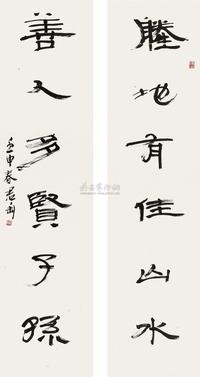 勝地有佳山水
善人多賢子孫
壬申春